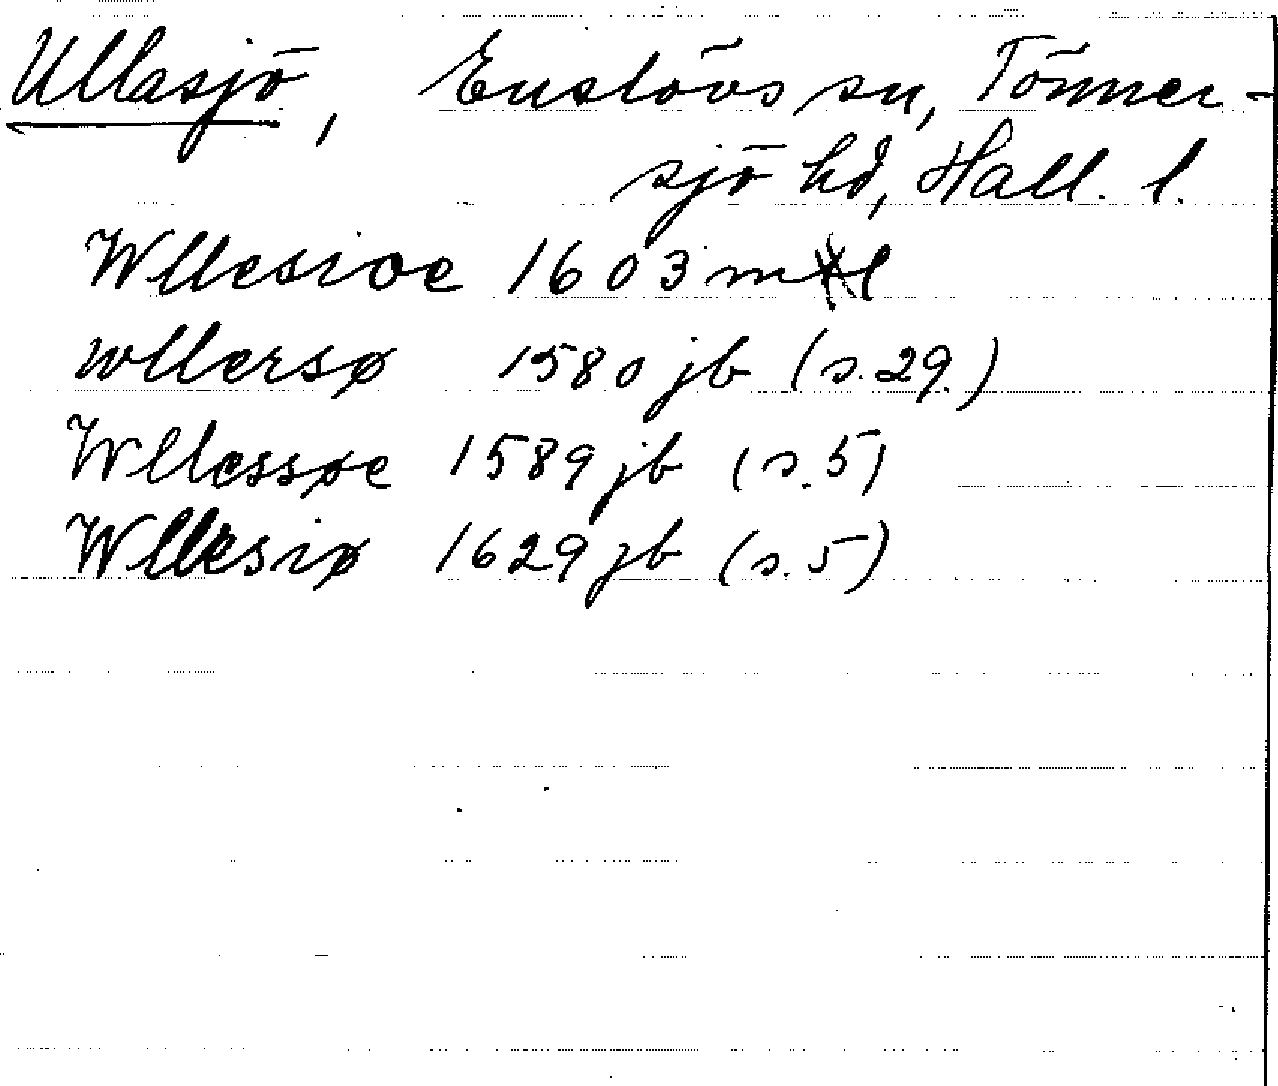 Ullasjö, Enslövs sn, Tönner-
sjö hd, Hall. l.
Wllesioe 1603 mtl
wllersø 1580 jb (s. 29.)
Wllessøe 1589 jb (s. 5)
Wllesiø 1629 jb (s. 5)